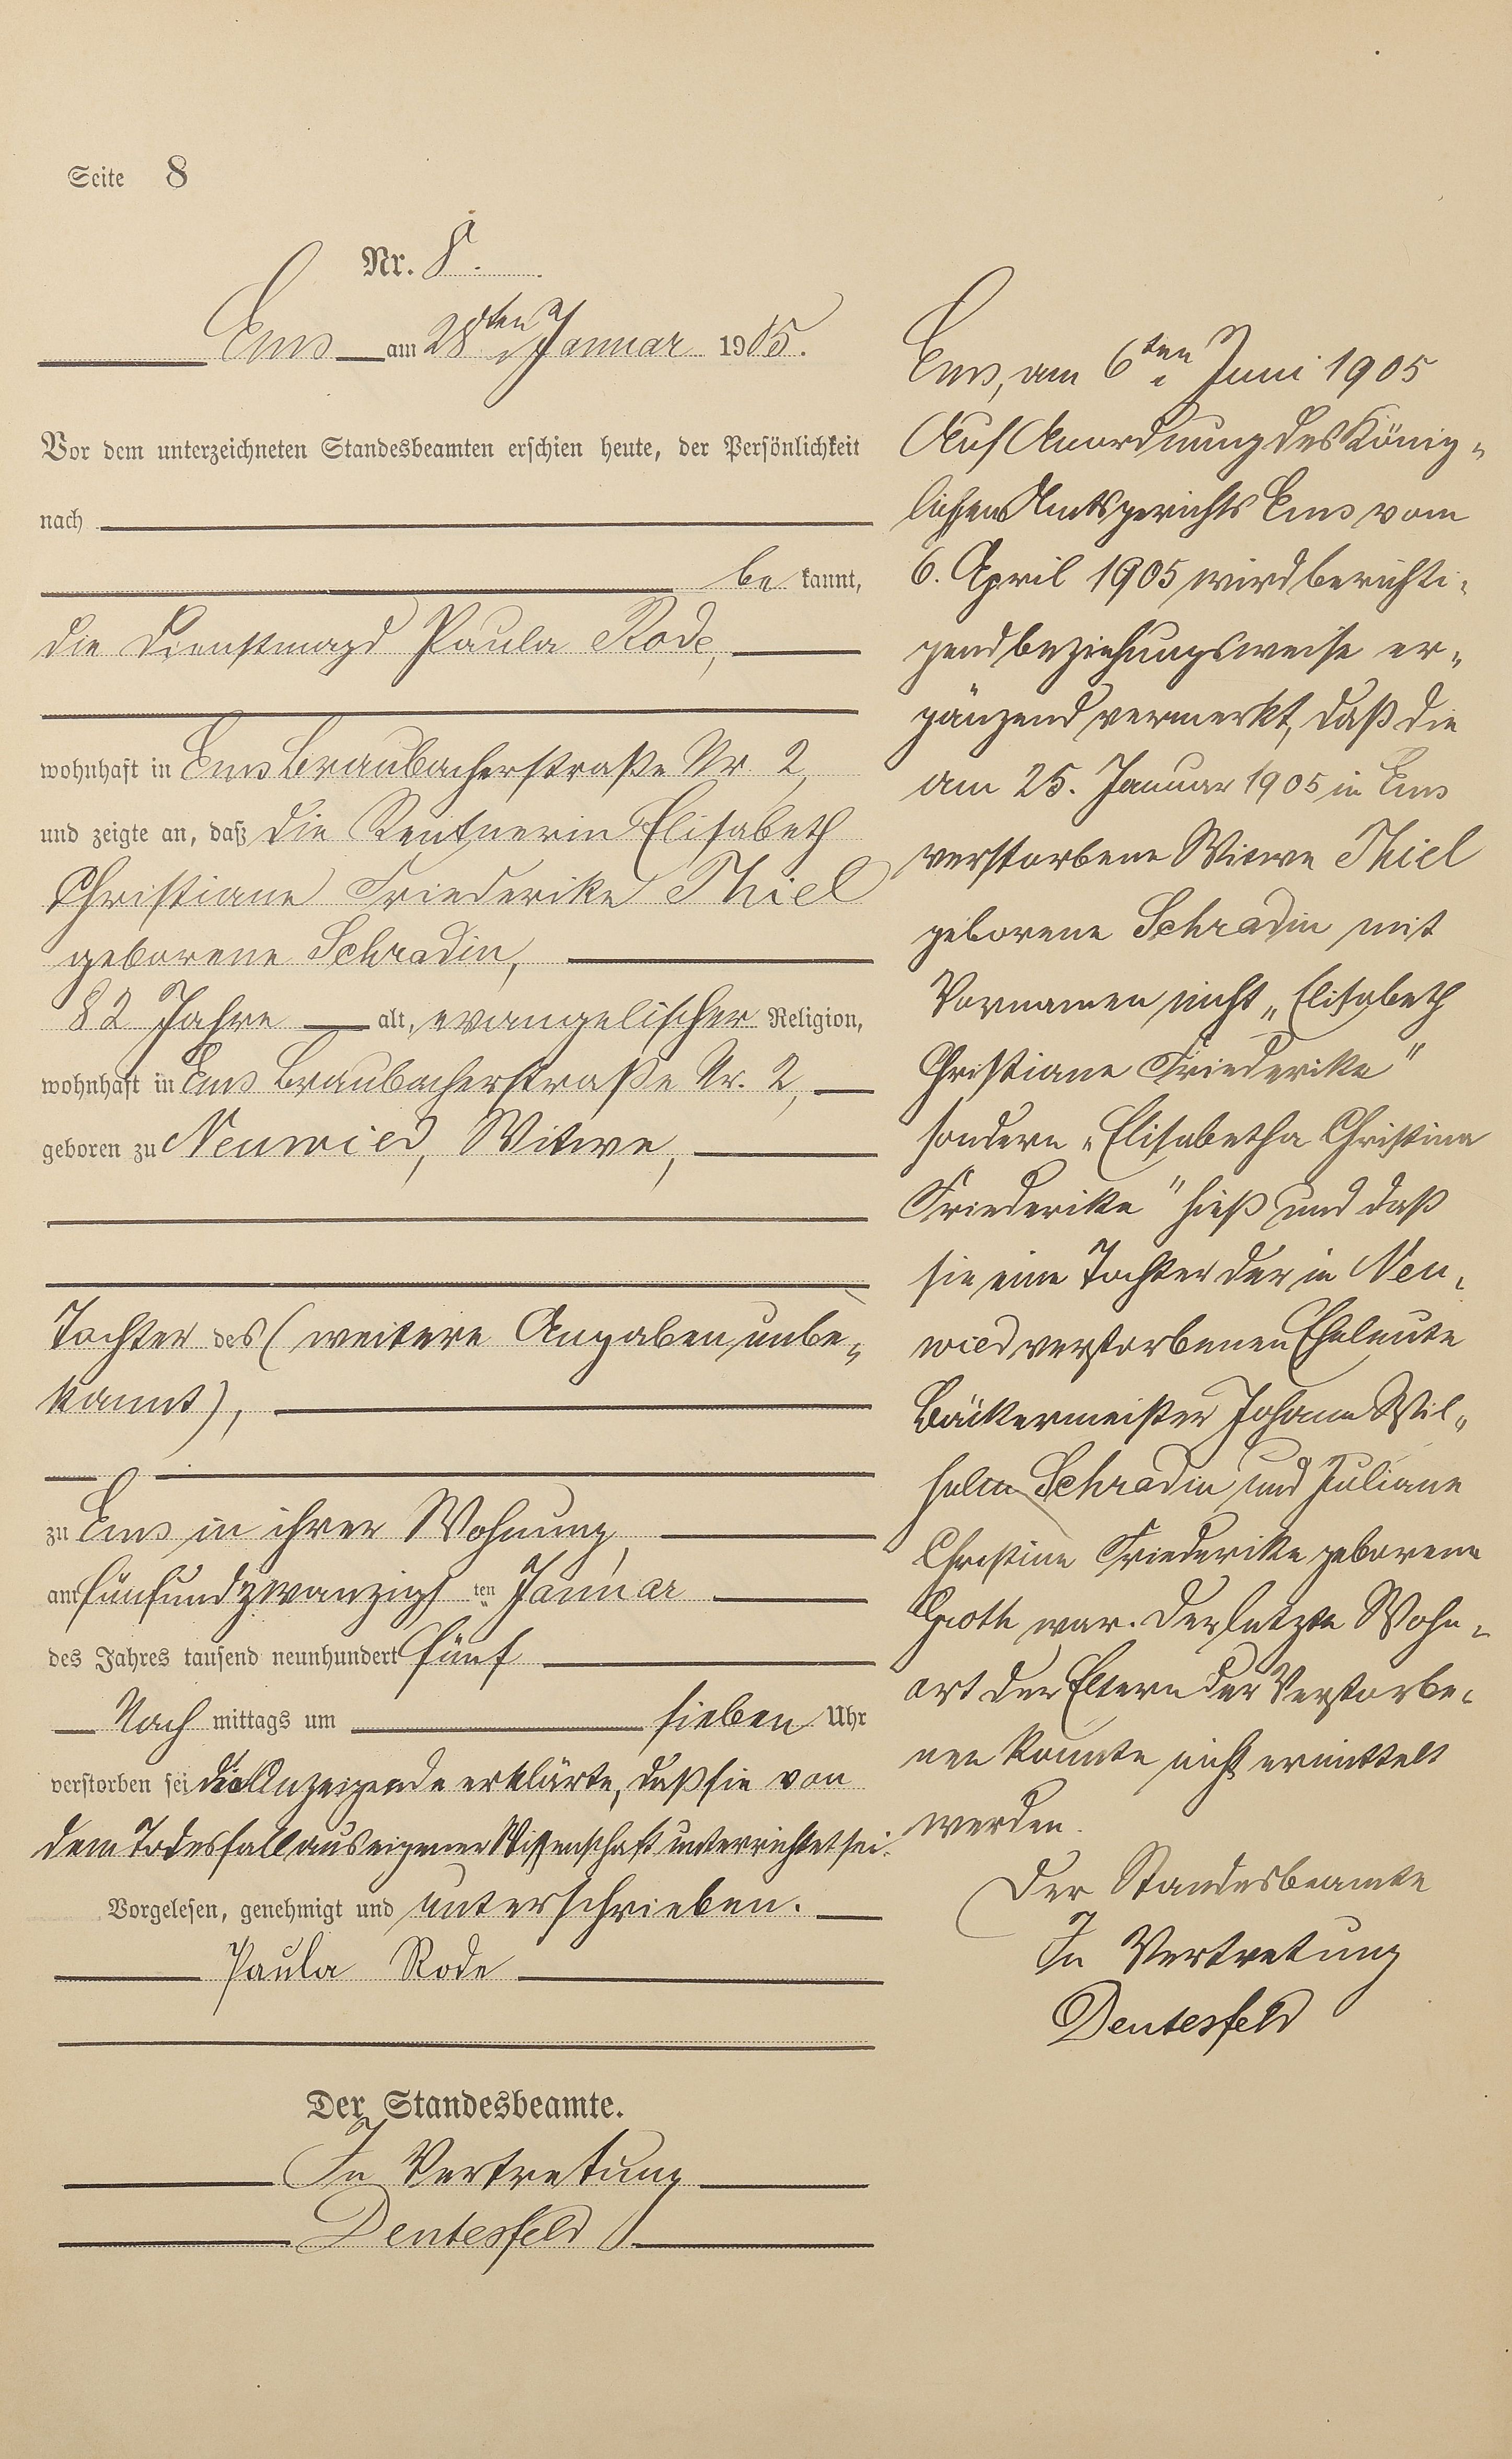 Seite 8
Nr. 8.
Ems am 28ten Januar 1905.
Vor dem unterzeichneten Standesbeamten erschien heute, der Persönlichkeit
nach
be kannt,
die Dienstmagd Paula Rode,
wohnhaft in Ems Braubacherstraße Nr. 2,
und zeigte an, daß die Rentnerin Elisabeth
Christiane Friederike Thiel
geborene Schradin,
82 Jahre alt, evangelischer Religion,
wohnhaft in Ems Braubacherstraße Nr. 2,
geboren zu Neuwied, Witwe,
Tochter des (weitere Angaben unbe„
kannt),
zu Ems in ihrer Wohnung,
am fünfundzwanzigsten Januar
des Jahres tausend neunhundert fünf
Nach mittags um sieben Uhr
verstorben sei. die Anzeigende erklärte, daß sie von
dem Todesfall aus eigener Wissenschaft unterrichtet sei.
Vorgelesen, genehmigt und unterschrieben.
Paula Rode
Der Standesbeamte.
In Vertretung
Dentesfeld
Ems, am 6ten Juni 1905
Auf Anordnung des König„
lichen Amtsgerichts Ems vom
6. April 1905 wird berichti„
gend beziehungsweise er„
gänzend vermerkt, daß die
am 25. Januar 1905 in Ems
verstorbene Witwe Thiel
geborene Schradin mit
Vornamen nicht „Elisabeth
Christiane Friederike"
sondern „Elisabetha Christina
Friederike" hieß und daß
sie eine Tochter der in Neu„
wied verstorbenen Eheleute
Bäckermeister Johann Wil„
helm Schradin und Juliane
Christine Friederike geborene
Groth war. Der letzte Wohn„
ort der Eltern der Verstorbe„
nen konnte nicht ermittelt
werden.
Der Standesbeamte
In Vertretung
Dentesfeld